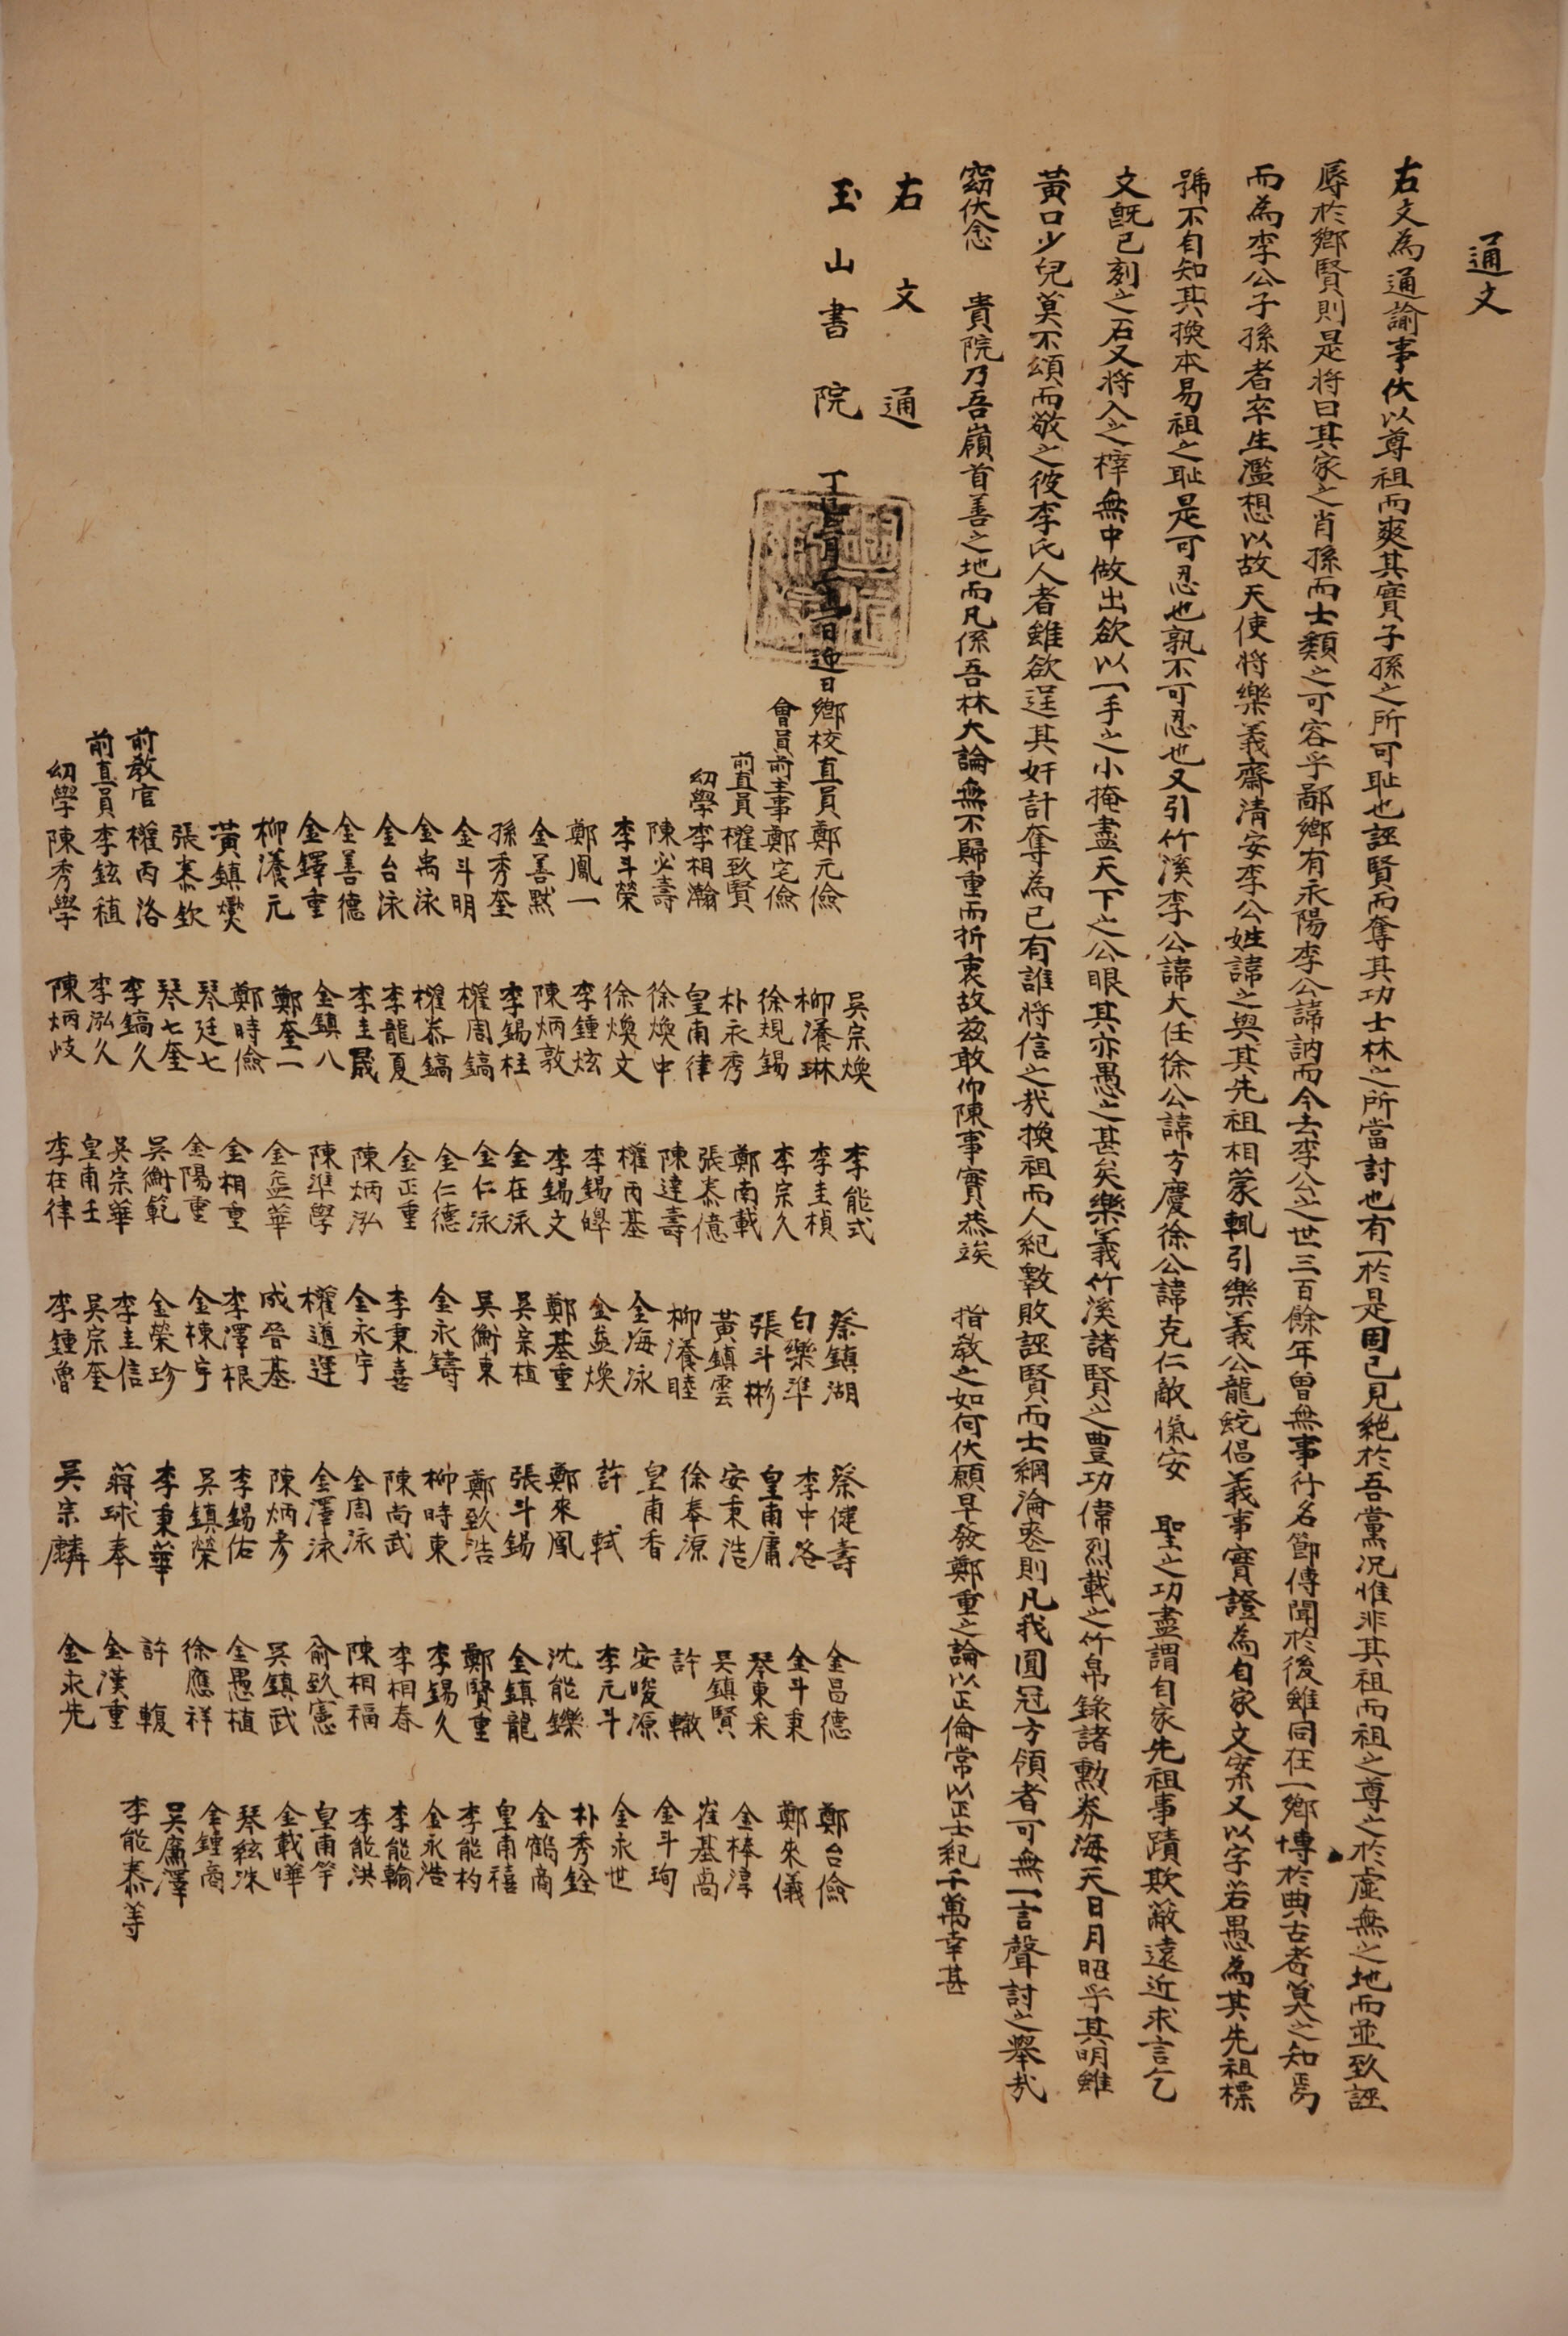 通文
右文為通諭事伏以尊祖而爽其實子孫之所可耻也誣賢而奪其功士林之所當討也有一於是固已見絶於吾黨况惟非其祖而祖之尊之於虛無之地而並致誣
辱於鄉賢則是將曰其家之肖孫而士類之可容乎鄙鄉有永陽李公諱訥而今去李公之世三百餘年曾無事行名節傳聞於後雖同在一鄉博於典古者莫之知焉
而為李公子孫者卒生濫想以故天使將樂義齋清安李公姓諱之與其先祖相蒙輒引樂義公龍蛇倡義事實證為自家文案又以字若愚為其先祖標
號不自知其換本易祖之耻是可忍也孰不可忍也又引竹溪李公諱大任徐公諱方慶徐公諱克仁敵愾安 聖之功盡謂自家先祖事蹟欺蔽遠近求言乞
文旣已刻之石又將入之梓無中做出欲以一手之小掩盡天下之公眼其亦愚之甚矣樂義竹溪諸賢之豊功偉烈載之竹帛錄諸勳券海天日月昭乎其明雖
黃口少兒莫不頌而敬之彼李氏人者雖欲逞其奸計奪為己有誰將信之哉換祖而人紀斁敗誣賢而士綱淪喪則凡我圓冠方領者可無一言聲討之擧哉
窃伏念 貴院乃吾嶺首善之地而凡係吾林大論無不歸重而折衷故玆敢仰陳事實恭竢 指敎之如何伏願早發鄭重之論以正倫常以正士紀千萬幸甚
右文通
玉山書院 丁 月 日迎日鄉校直員鄭元儉
會員前主事鄭宅儉
前直員權致賢
幼學李相瀚
陳必壽
李斗榮
鄭鳳一
金善默
孫秀奎
金斗明
金禹泳
金台泳
金善德
金鐸重
柳瀁元
黃鎮爕
張泰欽
前教官權丙洛
前直員李鉉稙
幼學陳秀學
吳宗煥
柳瀁琳
徐規錫
朴永秀
皇甫律
徐煥中
徐煥文
李鍾炫
陳炳敦
李錫柱
權周鎬
權泰鎬
李龍夏
李圭晟
金鎮八
鄭奎二
鄭時儉
琴廷七
琴七奎
李鎬久
李泓久
陳炳岐
李能式
李圭楨
李宗久
鄭南載
張泰億
陳達壽
權丙基
李錫皥
李錫文
金在泳
金仁泳
金仁德
金正重
陳炳泓
陳準學
金益華
金相重
金陽重
吳衡範
吳宗華
皇甫壬
李在律
蔡鎮湖
白樂準
張斗彬
黃鎮雲
柳瀁睦
金海泳
金益煥
鄭基重
吳宗植
吳衡東
金永鑄
李秉喜
金永宇
權道運
成晉基
李澤根
金棟宇
金榮珍
李圭信
吳宗奎
李鍾魯
蔡健壽
李中洛
皇甫庸
安秉浩
徐奉源
皇甫香
許軾
鄭來鳳
張斗錫
鄭致浩
柳時東
陳尚武
金周泳
金澤泳
陳炳彦
李錫佑
吳鎮榮
李秉華
蔣球奉
吳宗麟
金昌德
金斗秉
琴東采
吳鎮賢
許轍
安晙源
李元斗
沈能鑠
金鎮龍
鄭賢重
李錫久
李相春
陳相福
俞致憲
吳鎮武
金愚植
徐應祥
許輹
金漢重
金永先
鄭台儉
鄭來儀
金棒漳
崔基卨
金斗珣
金永世
朴秀銓
金鶴商
皇甫禧
李能杓
金永浩
李能翰
李能洪
皇甫竿
金載曄
琴鉉洙
金鍾商
吳廉澤
李能泰等